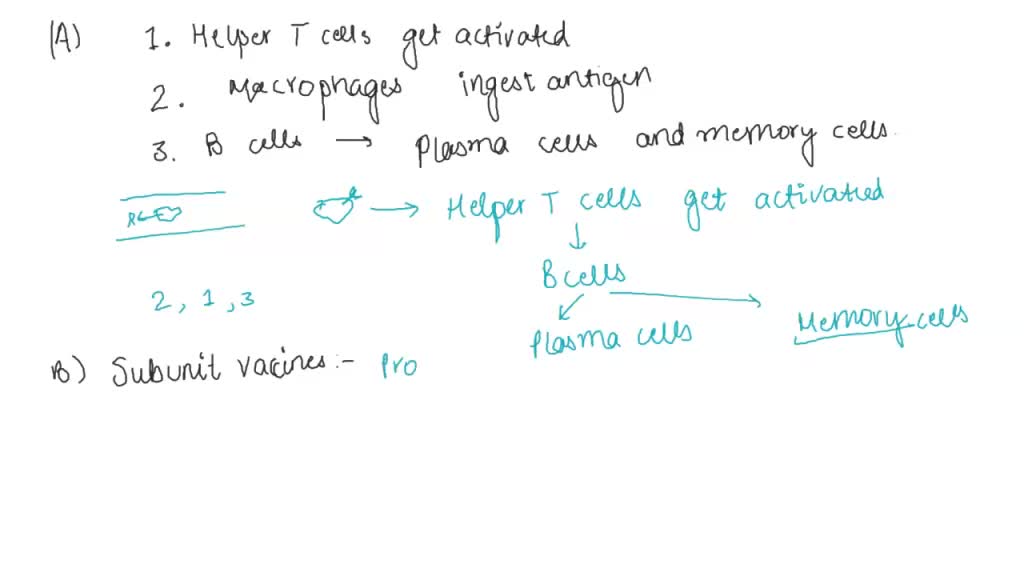 (A) 1. Helper T cells get activated
2. Macrophages ingest antigen
3. B cells → Plasma cells and memory cells.
→ Helper T cells get activated
↓
B cells
2, 1, 3
Plasma cells Memory cells
B) Subunit vacines :- Pro